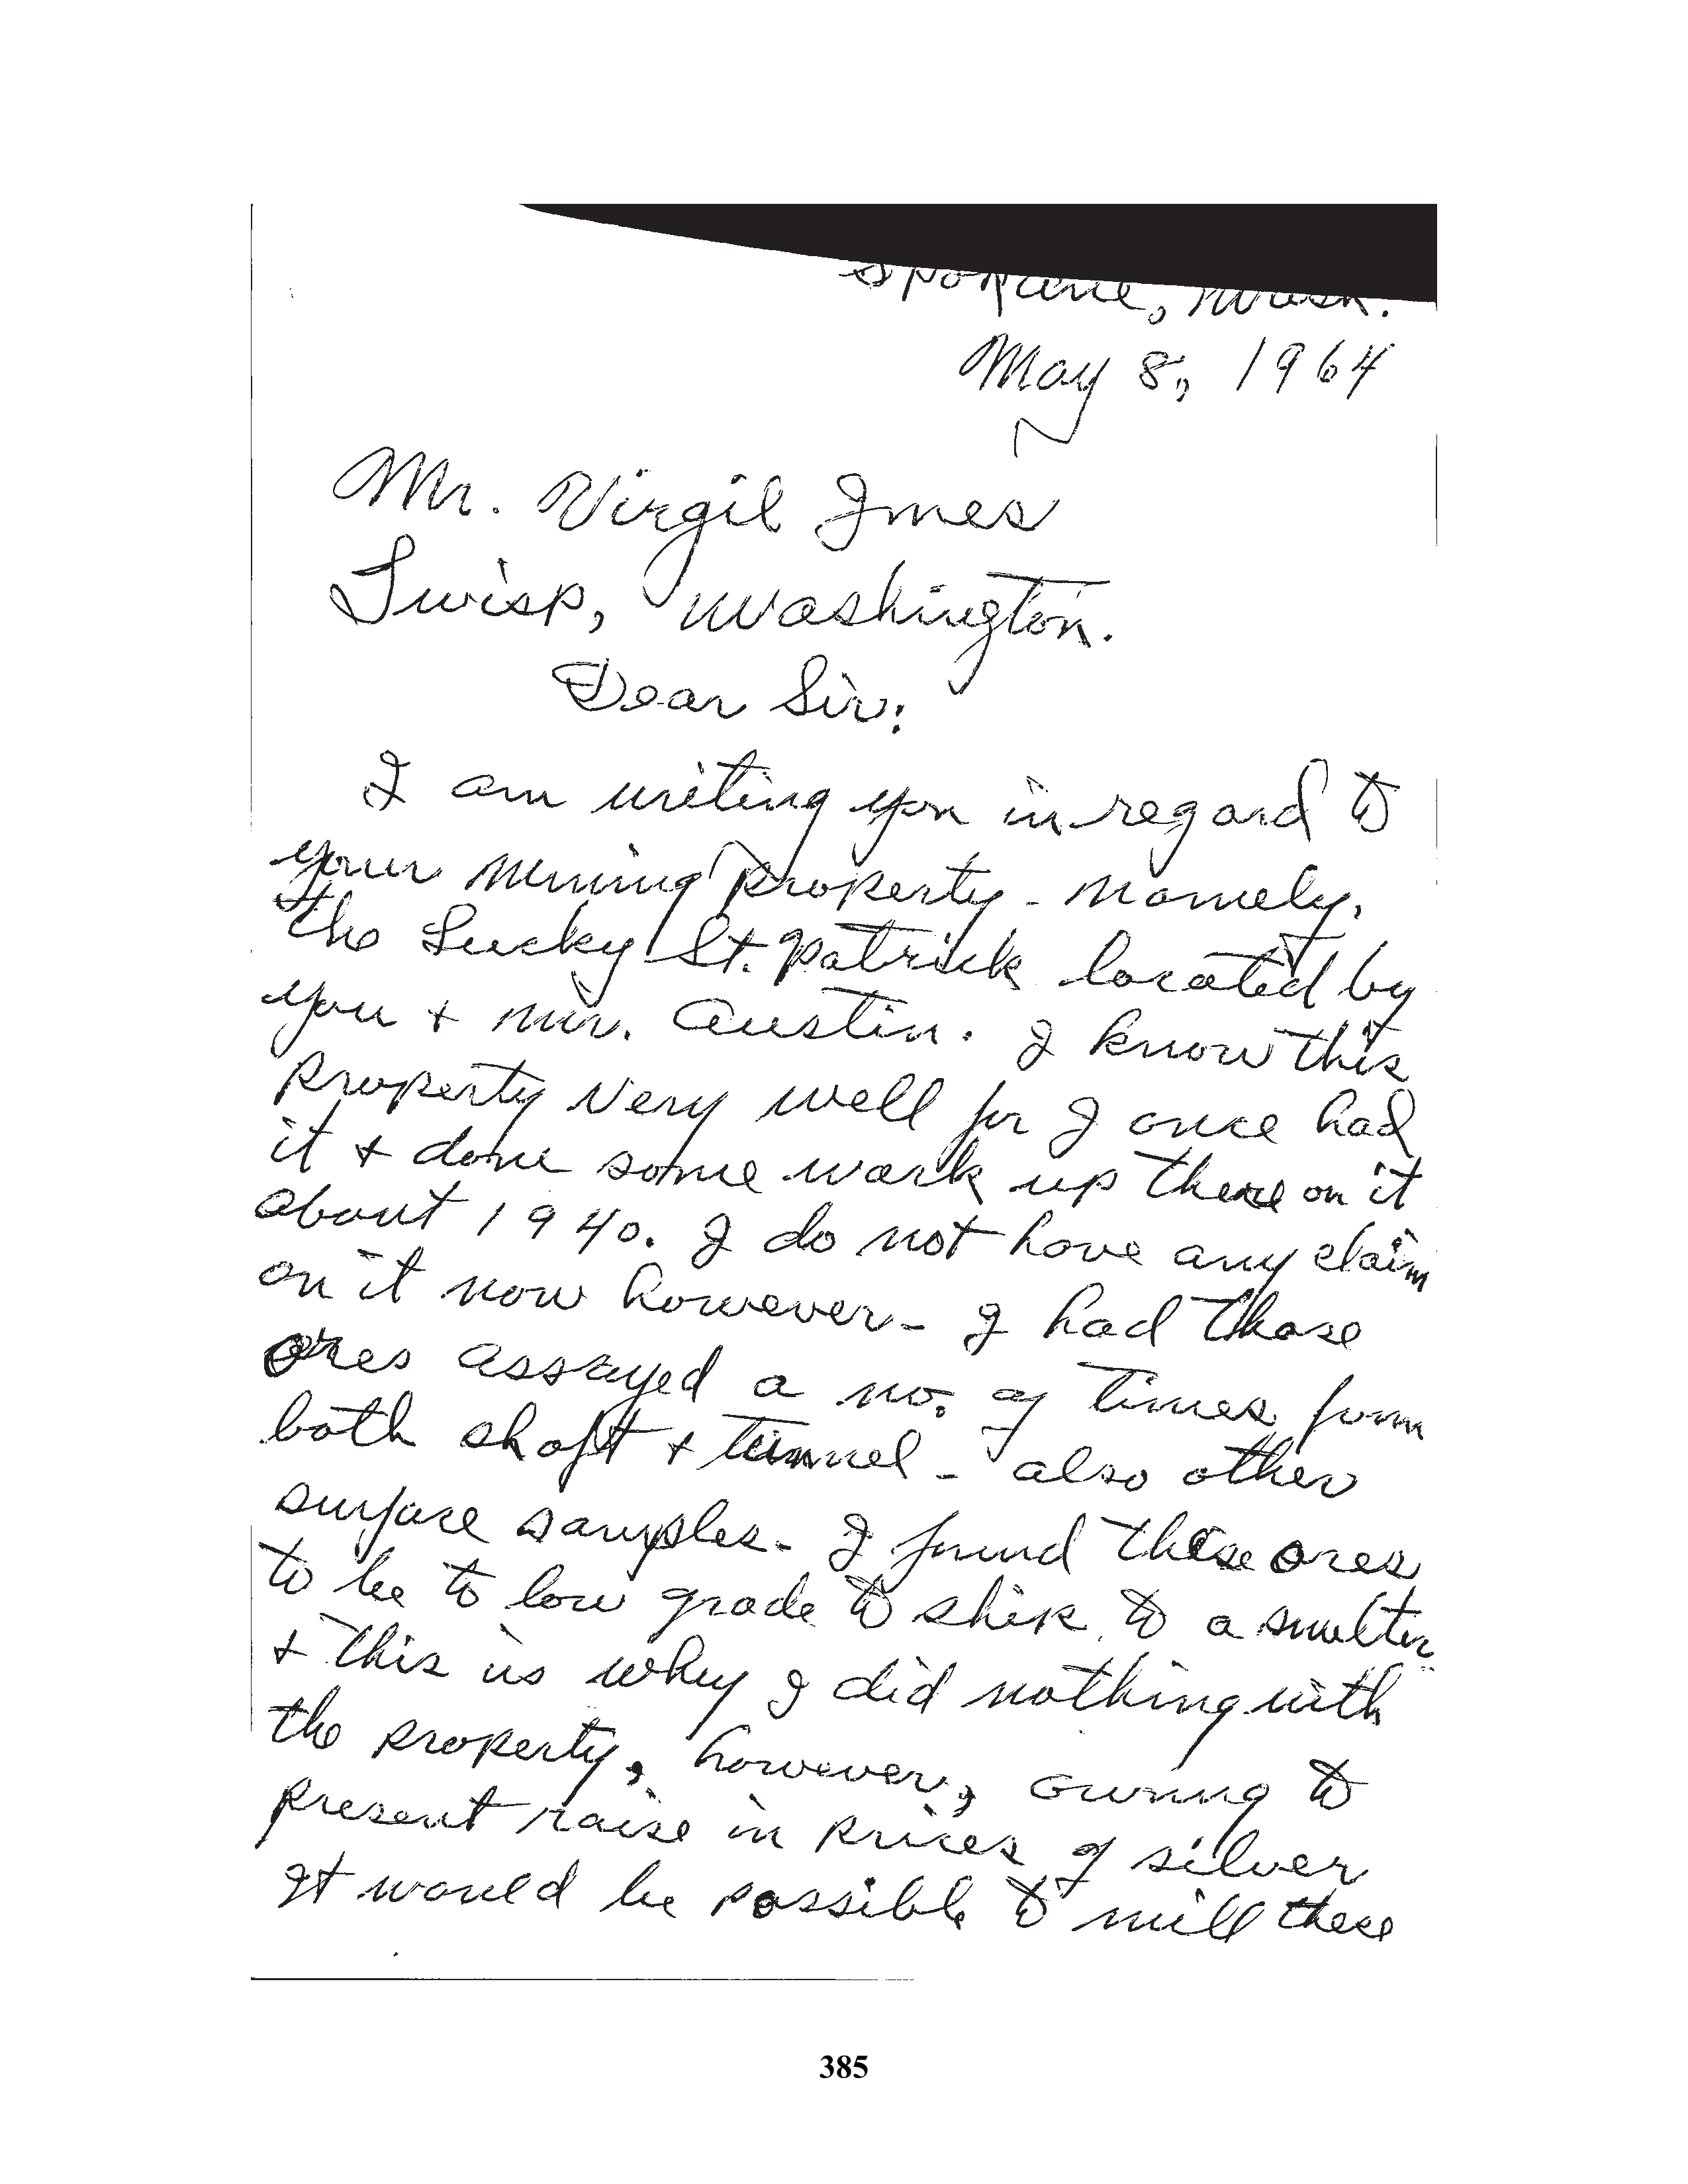 Spokane, Wash.
May 8, 1964
Mr. Virgil Imes
Twisp, Washington.
Dear Sir:
I am writing you in regard to
your mining property - namely,
the Lucky St. Patrick located by
you + Mr. Austin. I know this
property very well for I once had
it + done some work up there on it
about 1940. I do not have any claim
on it now however - I had those
ores assayed a no. of times from
both shaft + tunnel - also other
surface samples - I found these ores
to be to low grade to ship to a smelter
+ this is why I did nothing with
the property, however, owning to
present raise in prices of silver
It would be possible to mill these
385